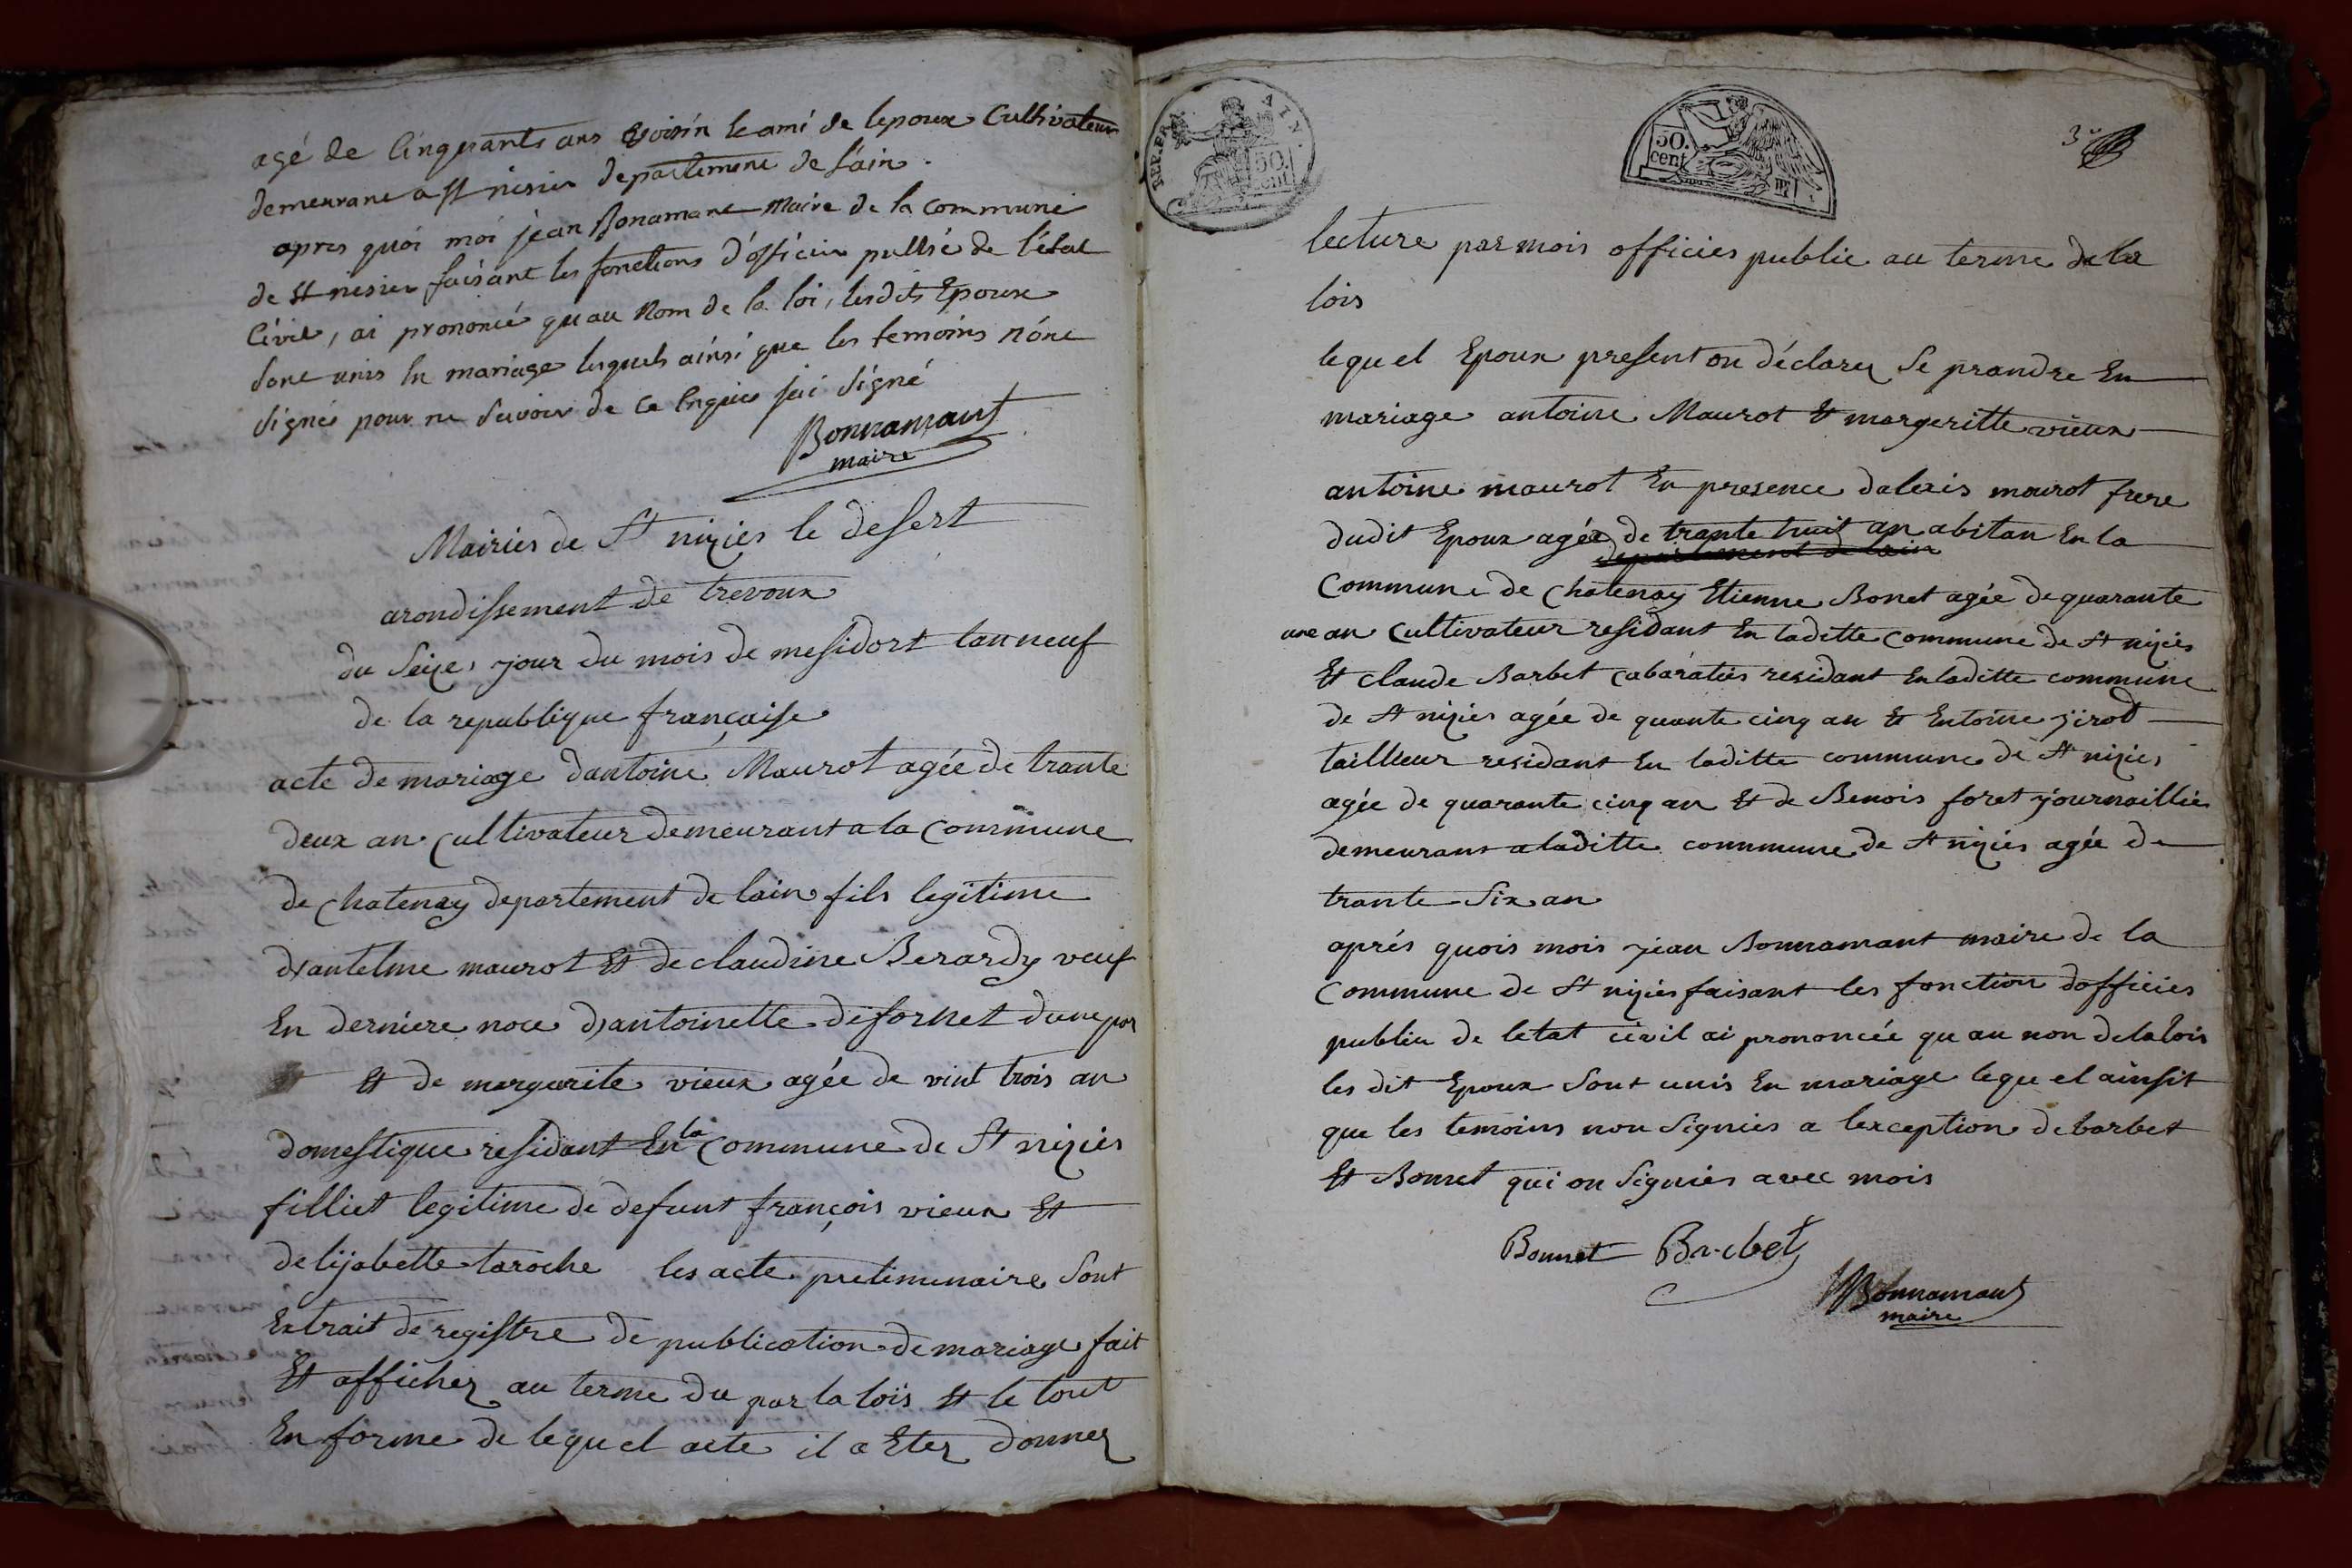 agé de Cinquante ans voisin le ami de lepoux Cultivateur
demeurant a st nisier departement de l'ain .
apres quoi moi jean Bonamant Maire de la commune
de st nisier faisant les fonctions d'officier public de l'état
Civil, ai prononcé quau Nom de la loi, lesdits Epoux
sont unis En mariage lesquels ainsi que les temoins n'ont
signés pour ne savoir de ce Enquis jai signé
Bonnamant
maire
Mairies de St nizies le desert
arondissement de trevoux
du seize jour du mois de mesidort lan neuf
de la republique française
acte de mariage dantoine Maurot agée de trante
deux an cultivateur demeurant a la Commune
de Chatenay departement de lain fils legitime
d'antelme maurot Et de claudine Berardy veuf
En derniere noce d'antoinette desornet dune par
Et de margarite vieux agée de vint trois an
domestique residant En la Commune de St nizies
filliet legitime de defunt françois vieux Et
de lizabette laroche les acte preliminaire sont
Extrait de registre de publication de mariage fait
Et affichez au terme du par la lois Et le tout
En forme de lequel acte il a Etez donnez
REP. FRA
50.
cent
50.
cent
3e
lecture par mois officies public au terme de la
lois
lequel Epoux present on déclarez se prandre En
mariage antoine Maurot Et margeritte vieux
antoine maurot En presence dalexis mourot frere
dudit Epoux agée de trante huit an abitan En la
departement de lain
Commune de Chatenay Etienne Bonet agée de quarante
une an Cultivateur residant En laditte Commune de St nizies
Et claude Barbet cabaraties residant En laditte commune
de St nizies agée de quante cinq an Et Entoine jirod
taillieur residant En laditte commune de St nizies
agée de quarante cinq an Et de Benois foret journaillies
demeurant a laditte connmune de St nizies agée de
trante Six an
aprés quois mois jean Bonnamant maire de la
Commune de St nizies faisant les fonction dofficies
publiu de letat civil ai prononcée qu au non de la lois
les dit Epoux sont unis En mariage lequel ainsit
que les temoins non signies a lexception de barbet
Et Bonnet qui on signies avec mois
Bonnet Barbet
Bonnamant
maire